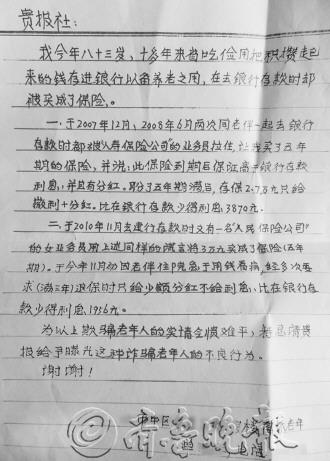 贵报社:
我今年八十三岁,十多年来省吃俭用把积攒起
来的钱存进银行以备养老之用,在去银行存款时却
被买成了保险。
一.于2007年12月、2008年6月两次同老伴一起去银行
存款时却被"人寿保险公司"的业务员拉住,让我买了五年
期的保险,并说:此保险到期后保证高于银行存款
利息,并且有分红。盼了五年期满后,存保2.7万元只给
微利+分红。比在银行存款少得利息3870元.
二.于2010年11月去建行存款时又有一名"人民保险公司"
的女业务员用上述同样的谎言将3万元买成了保险(五年
期)。于今年11月初因老伴住院急于用钱看病,经多次要
求(已满三年)退保时只给少额分红不给利息,比在银行存
款少得利息1956元。
为以上欺骗老年人的实情
报给予曝光这种诈骗老年人的不良行为。
谢谢!
市中区
老年
电话
齐鲁晚报